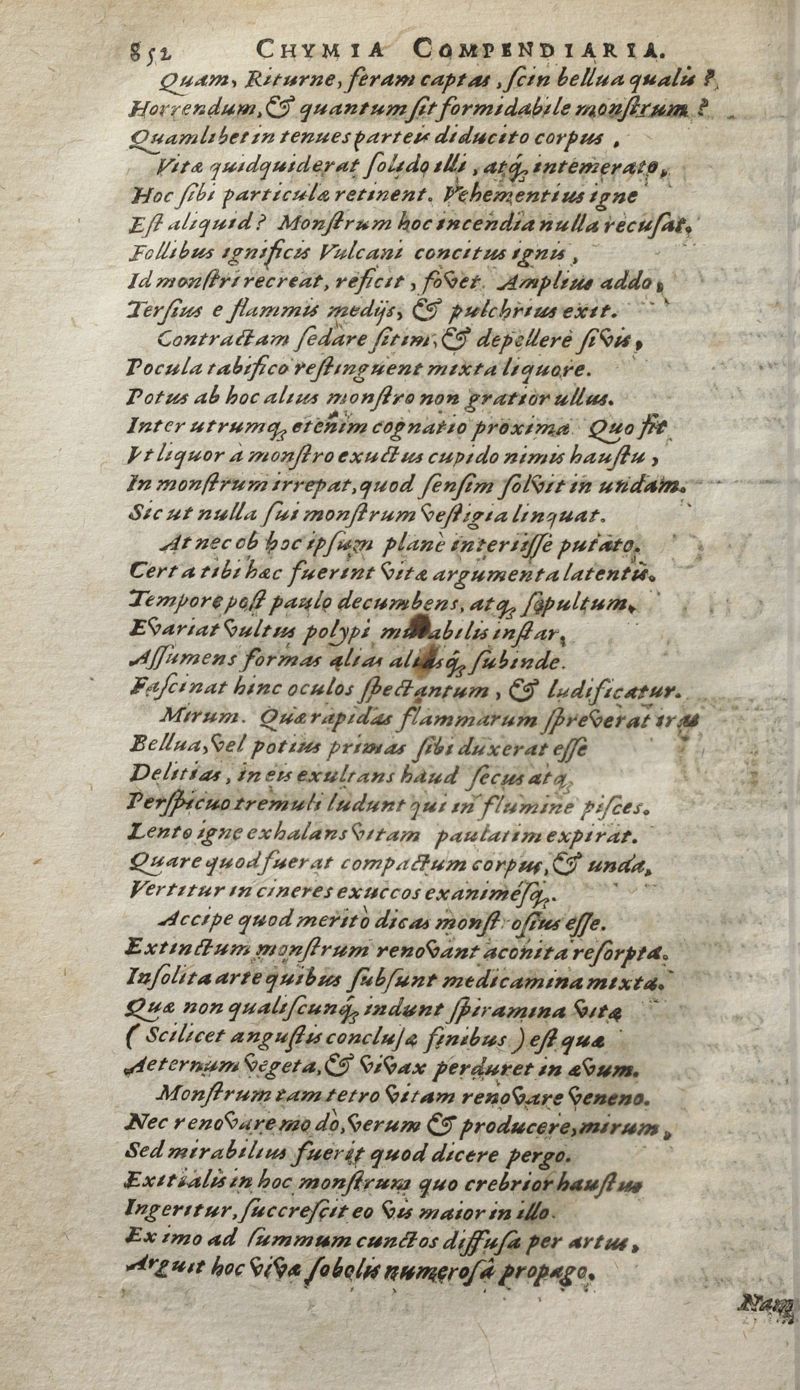 852 CHYMIA COMPENDIARIA.
Quam, Riturne, feram captas, scin bellua qualis?
Horrendum, & quantum sit formidabile monstrum?
Quamlibet in tenues parteis diducito corpus,
Vitæ quidquid erat solido illi, atq; intemerato,
Hoc sibi particulæ retinent. Vehementius igne
Est aliquid? Monstrum hoc incendia nulla recusat,
Follibus ignificis Vulcani concitus ignis,
Id monstri recreat, reficit, fovet. Amplius addo,
Tersius e flammis medijs, & pulchrius exit.
Contractam sedare sitim, & depellere sivis,
Pocula tabifico restinguent mixta liquore.
Potus ab hoc alius monstro non gratior ullus.
Inter utrumq; etenim cognatio proxima. Quo fit
Vt liquor à monstro exuctus cupido nimis haustu,
In monstrum irrepat, quod sensim solvit in undam.
Sic ut nulla sui monstrum vestigia linquat.
At nec ob hoc ipsum planè interiisse putato.
Certa tibi hæc fuerint vitæ argumenta latentis.
Tempore post paulo decumbens, atq; sepultum,
Evariat vultus polypi mutabilis instar,
Assumens formas alias aliasq; subinde.
Fascinat hinc oculos spectantum, & ludificatur.
Mirum. Quæ rapidas flammarum spreverat iras
Bellua, vel potius primas sibi duxerat esse
Delitias, in eis exultans haud secus atq;
Perspicuo tremuli ludunt qui in flumine pisces.
Lento igne exhalans vitam paulatim expirat.
Quare quod fuerat compactum corpus, & unda,
Vertitur in cineres exuccos exanimésq;.
Accipe quod merito dicas monstrosius esse.
Extinctum monstrum renovant aconita resorpta.
Insolita arte quibus subsunt medicamina mixta.
Quæ non qualiscunq; indunt spiramina vitæ
(Scilicet angustis conclusæ finibus) est quæ
Aeternum vegeta, & vivax perduret in ævum.
Monstrum tam tetro vitam renovare veneno.
Nec renovare modò, verum & producere, mirum,
Sed mirabilius fuerit quod dicere pergo.
Exitialis in hoc monstrum quo crebrior haustus
Ingeritur, succrescit eo vis maior in illo.
Ex imo ad summum cunctos diffusa per artus,
Arguit hoc viva sobolis numerosâ propago.
Nam